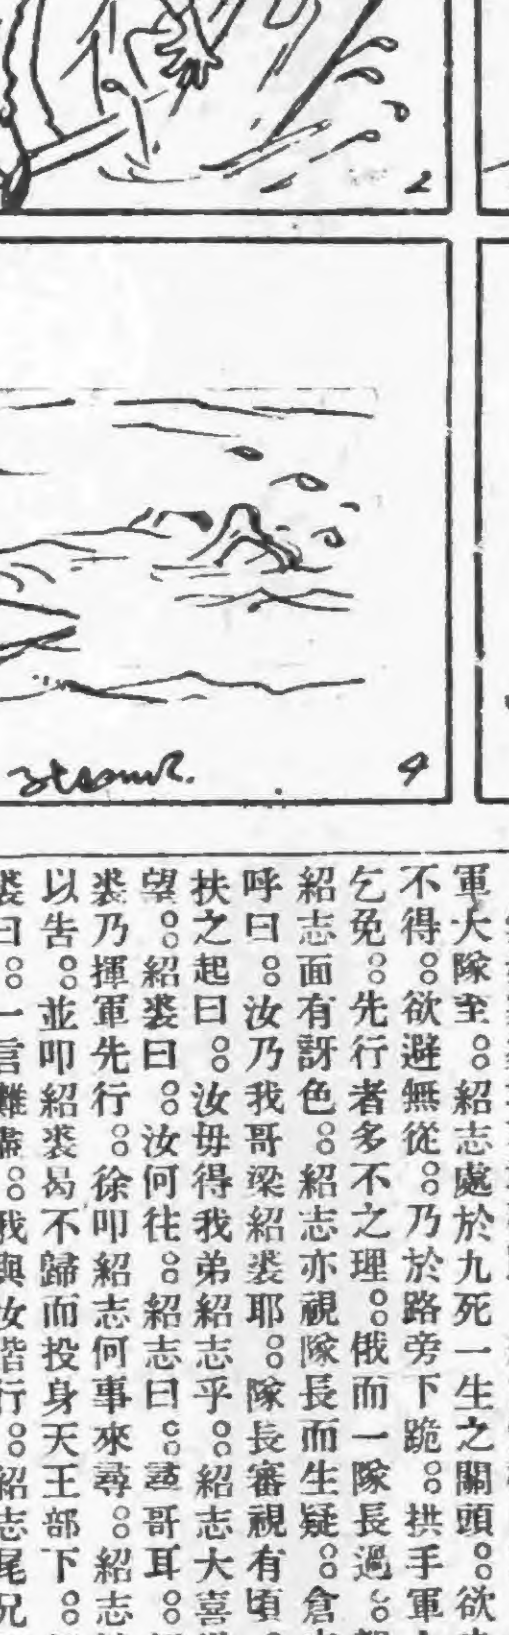 2
4
軍大隊至。紹志處於九死一生之關頭。欲
不得。欲避無從。乃於路旁下跪。拱手軍
乞免。先行者多不之理。俄而一隊長過。
紹志面有訝色。紹志亦視隊長而生疑。倉
呼曰。汝乃我哥梁紹裘耶。隊長審視有頃。
扶之起曰。汝毋得我弟紹志乎。紹志大喜
望。紹裘曰。汝何往。紹志曰。尋哥耳。
裘乃揮軍先行。徐叩紹志何事來尋。紹志
以告。並叩紹裘曷不歸而投身天王部下。
裘曰。一言難盡。我與汝偕行。紹志尾兄